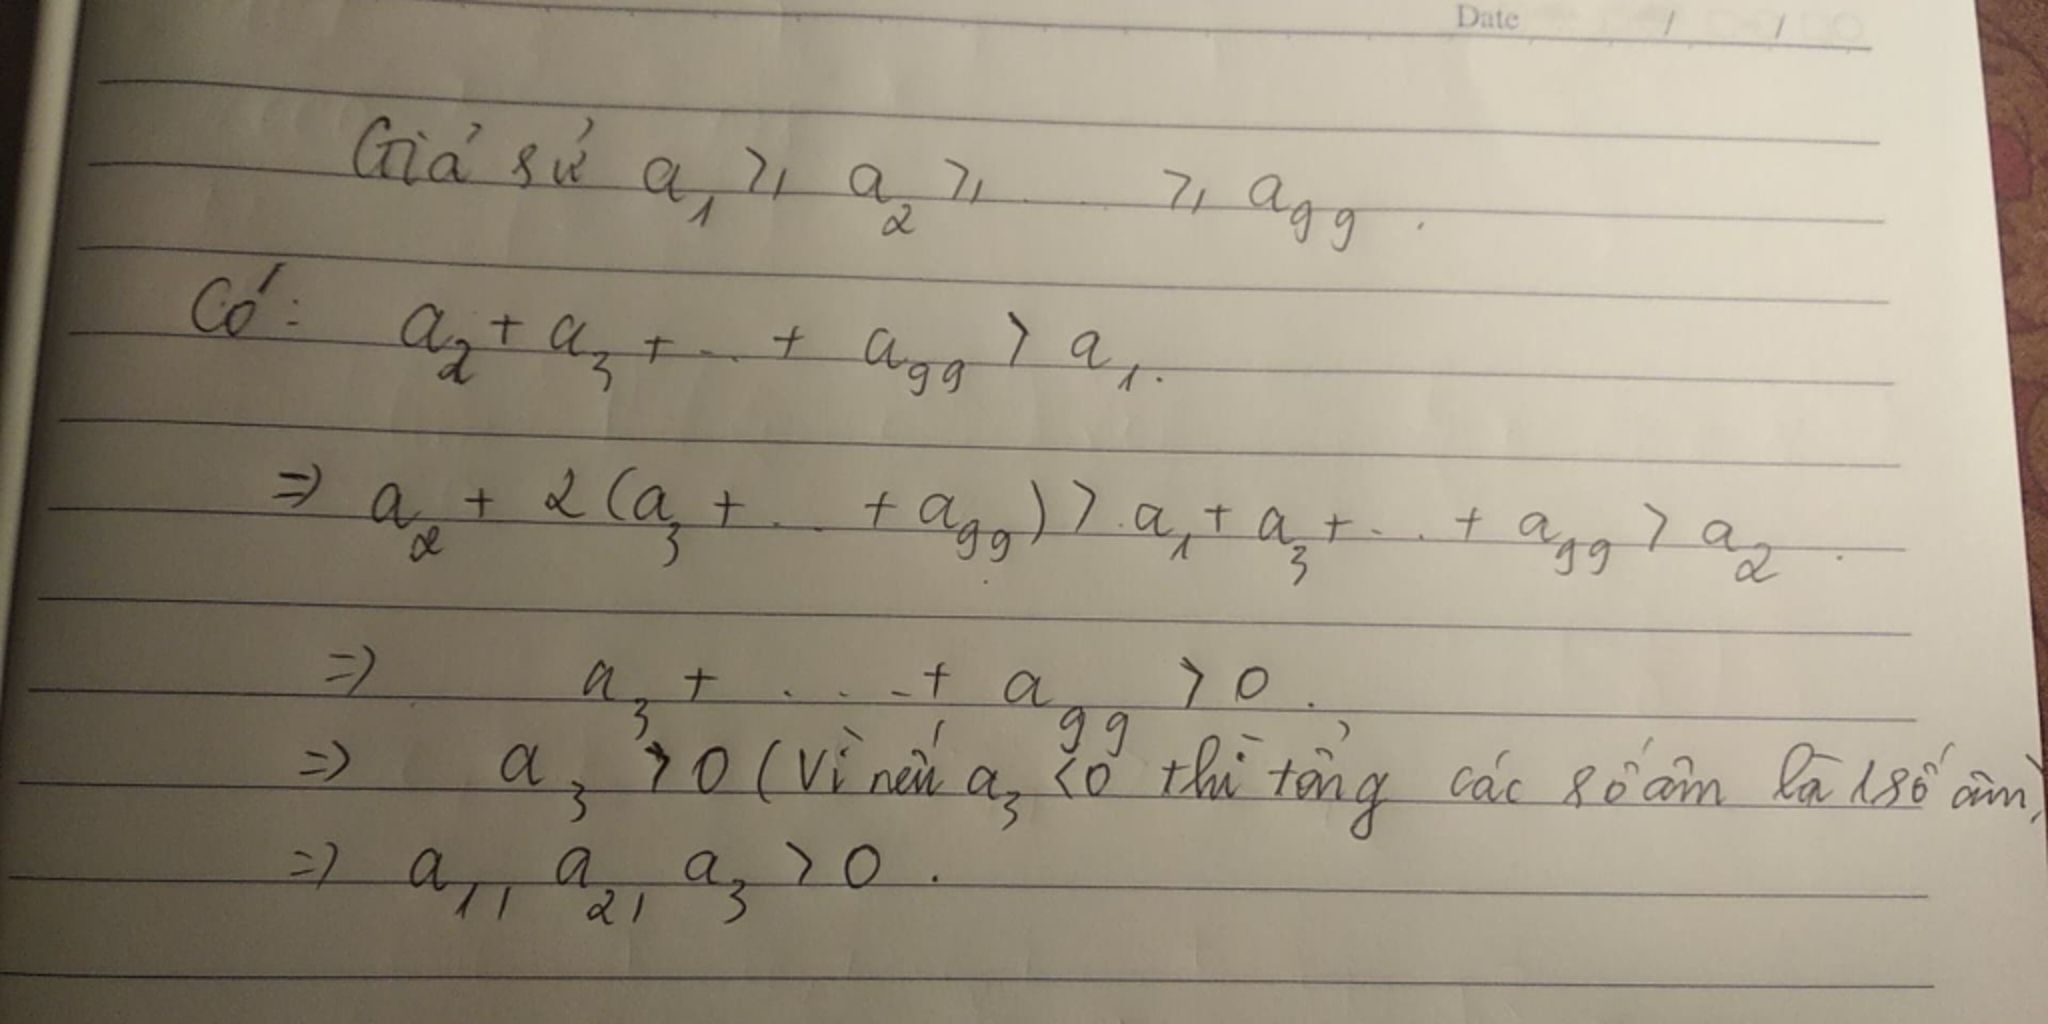 Date / /
Giả sử a₁ ≥ a₂ ≥ ... ≥ a₉₉.
Có: a₂ + a₃ + ... + a₉₉ > a₁.
⇒ a₂ + 2(a₃ + ... + a₉₉) > a₁ + a₃ + ... + a₉₉ > a₂.
⇒ a₃ + .... + a₉₉ > 0.
⇒ a₃ > 0 (Vì nếu a₃ < 0 thì tổng các số âm là 1 số âm)
⇒ a₁, a₂, a₃ > 0.